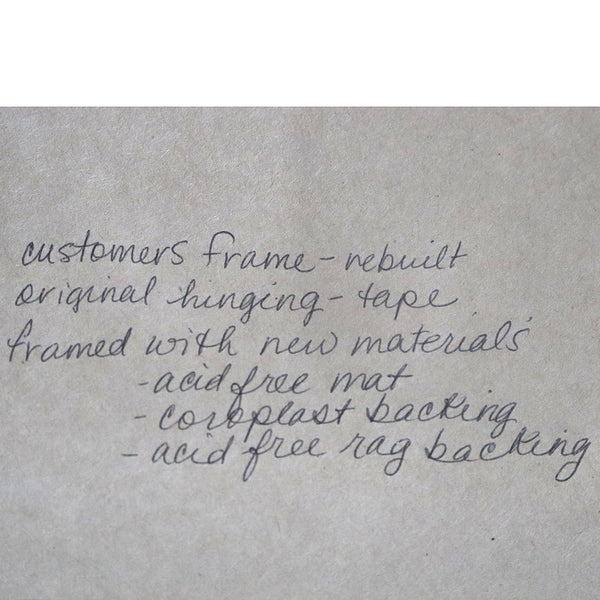 customers frame - rebuilt
original hinging - tape
framed with new materials
- acid free mat
- coroplast backing
- acid free rag backing